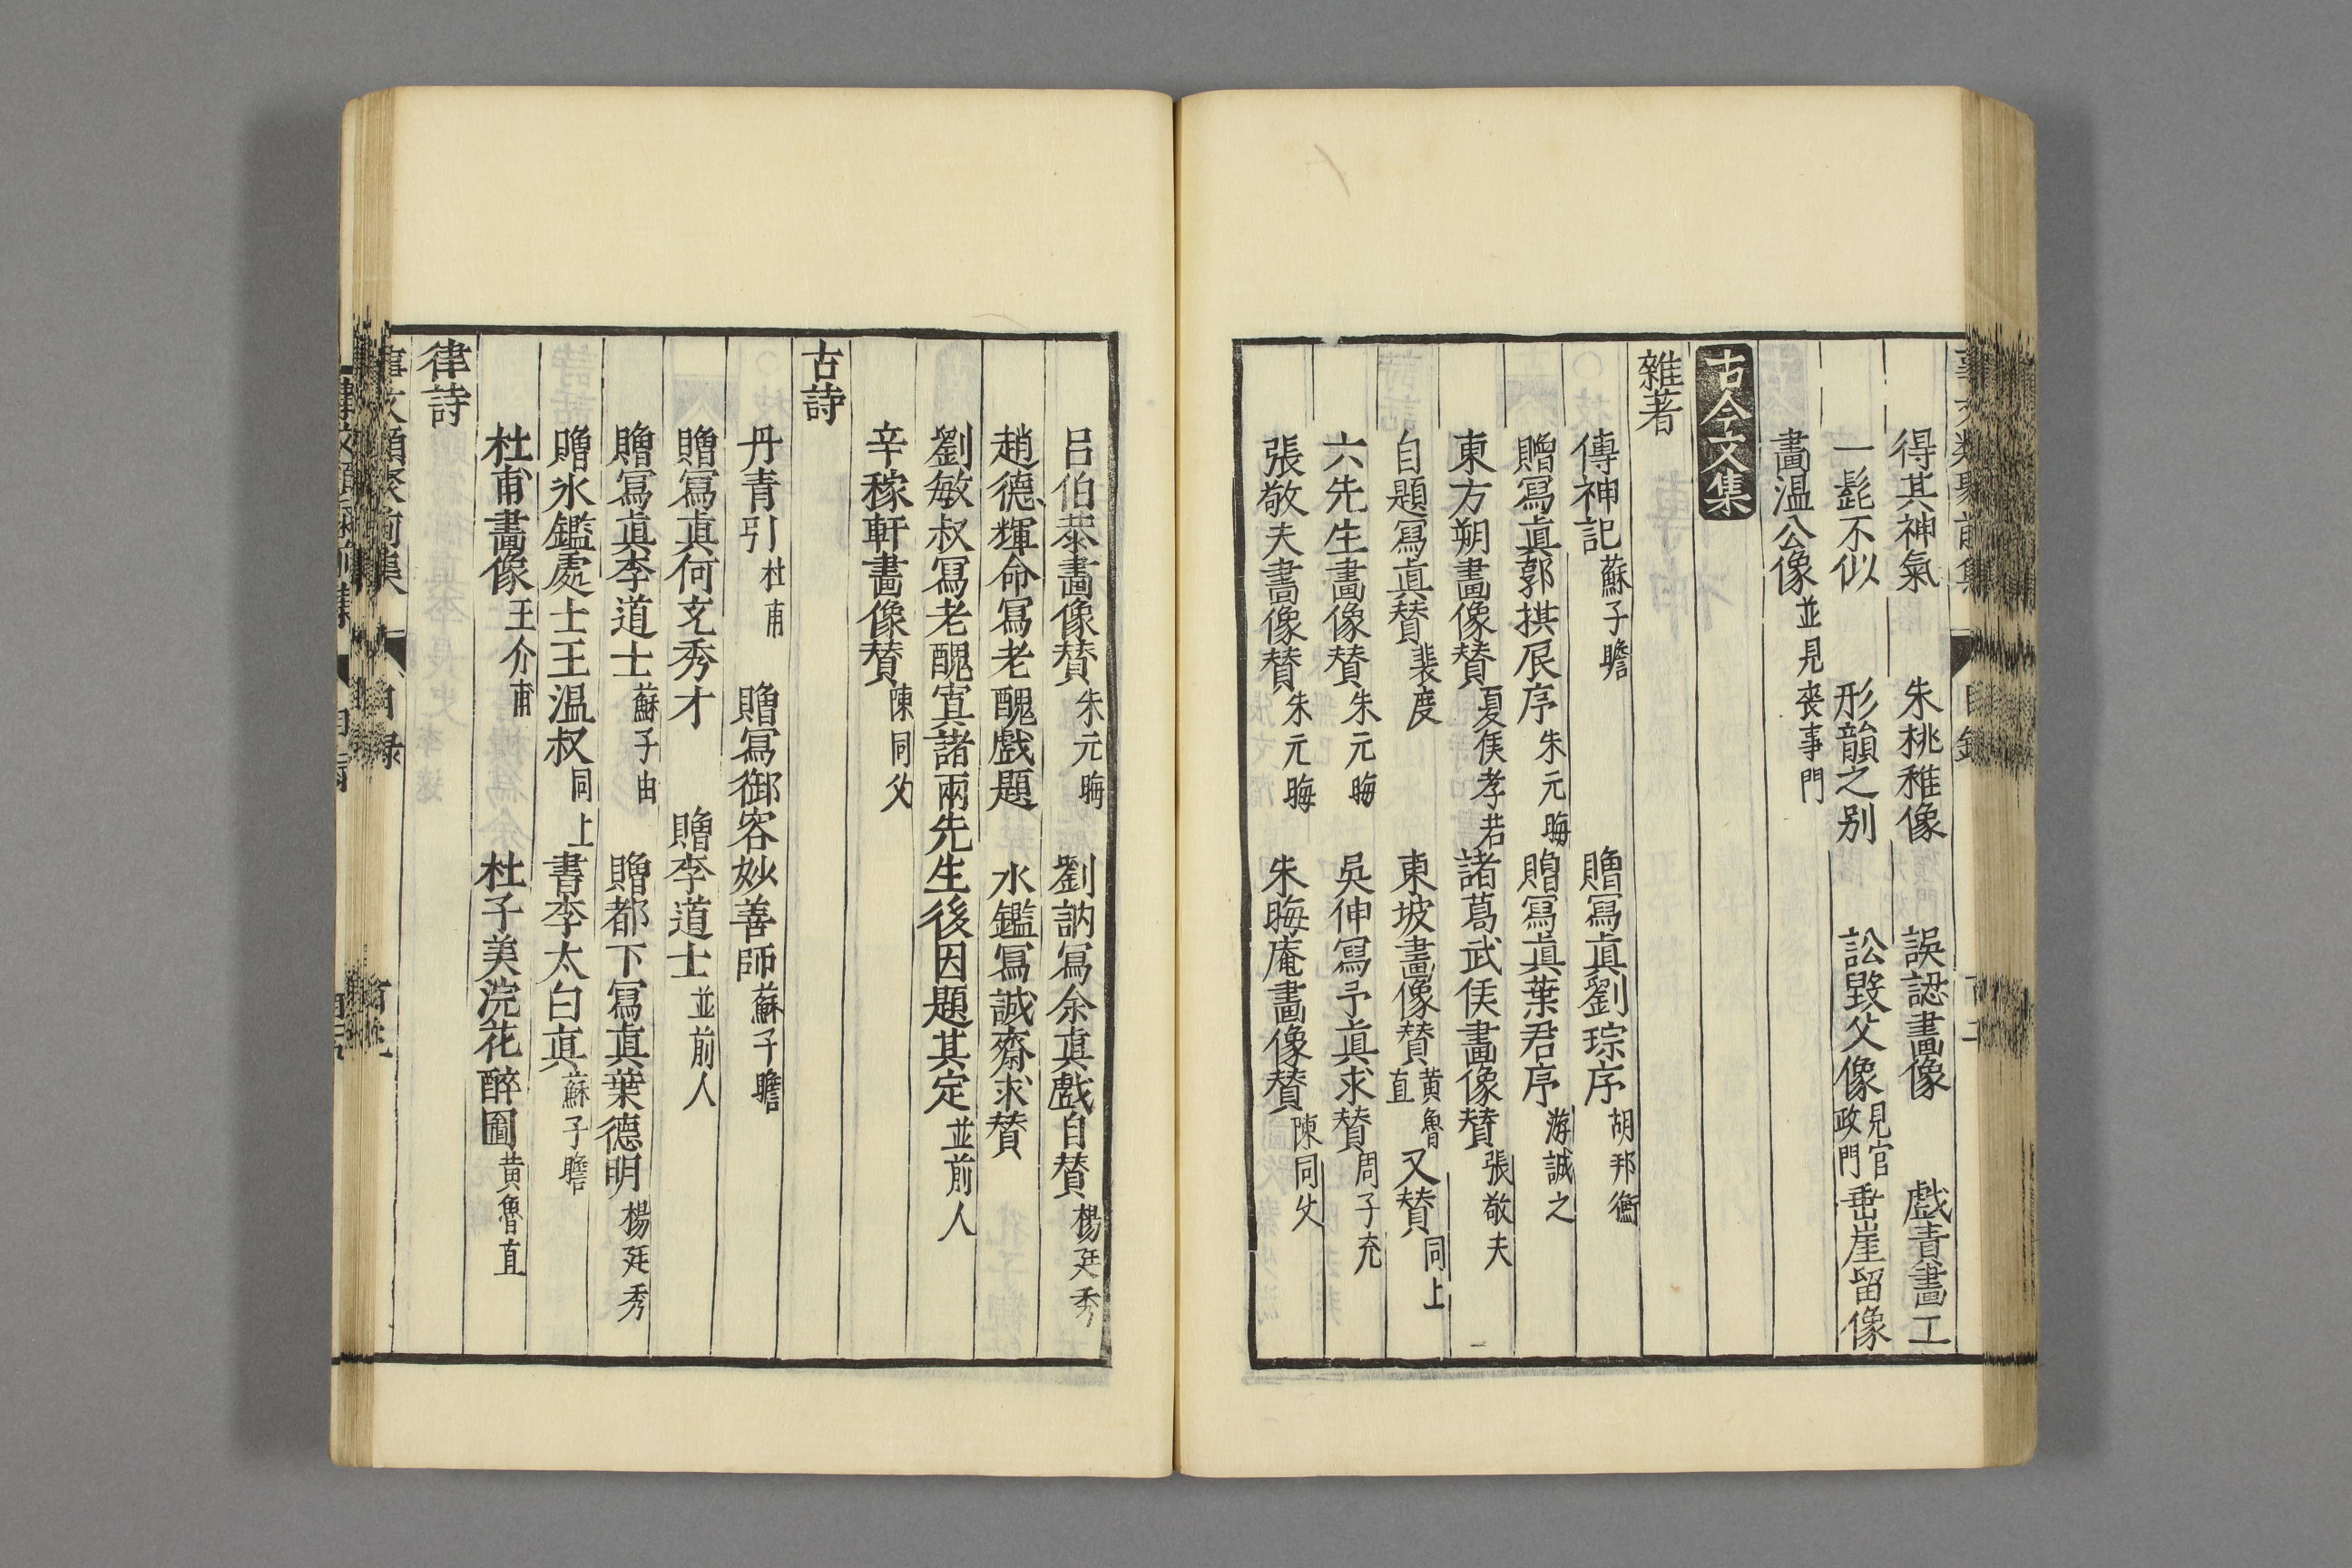 得其神氣　朱桃稚像　誤認畫像　戲責畫工
一髭不似　形韻之别　訟毀父像見官政門　乖崖留像
畫温公像並見喪事門
古今文集
雜著
傳神記蘇子瞻　贈寫眞劉琮序胡邦衡
贈寫眞郭拱辰序朱元晦　贈寫眞葉君序游誠之
東方朔畫像賛夏侯孝若　諸葛武侯畫像賛張敬夫
自題寫眞賛裴度　東坡畫像賛黄魯直　又賛同上
六先生畫像賛朱元晦　吳伸寫予眞求賛周子充
張敬夫畫像賛朱元晦　朱晦庵畫像賛陳同父
吕伯恭畫像賛朱元晦　劉訥寫余眞戲自賛楊廷秀
趙德輝命寫老醜戲題　水鑑寫誠齋求賛
劉敏叔寫老醜寘諸兩先生後因題其定並前人
辛稼軒畫像賛陳同父
古詩
丹青引杜甫　贈寫御容妙善師蘇子瞻
贈寫眞何充秀才　贈李道士並前人
贈寫眞李道士蘇子由　贈都下寫眞葉德明楊廷秀
贈氷鑑處士王温叔同上　書李太白眞蘇子瞻
杜甫畫像王介甫　杜子美浣花醉圖黄魯直
律詩
事文類聚前集　目録